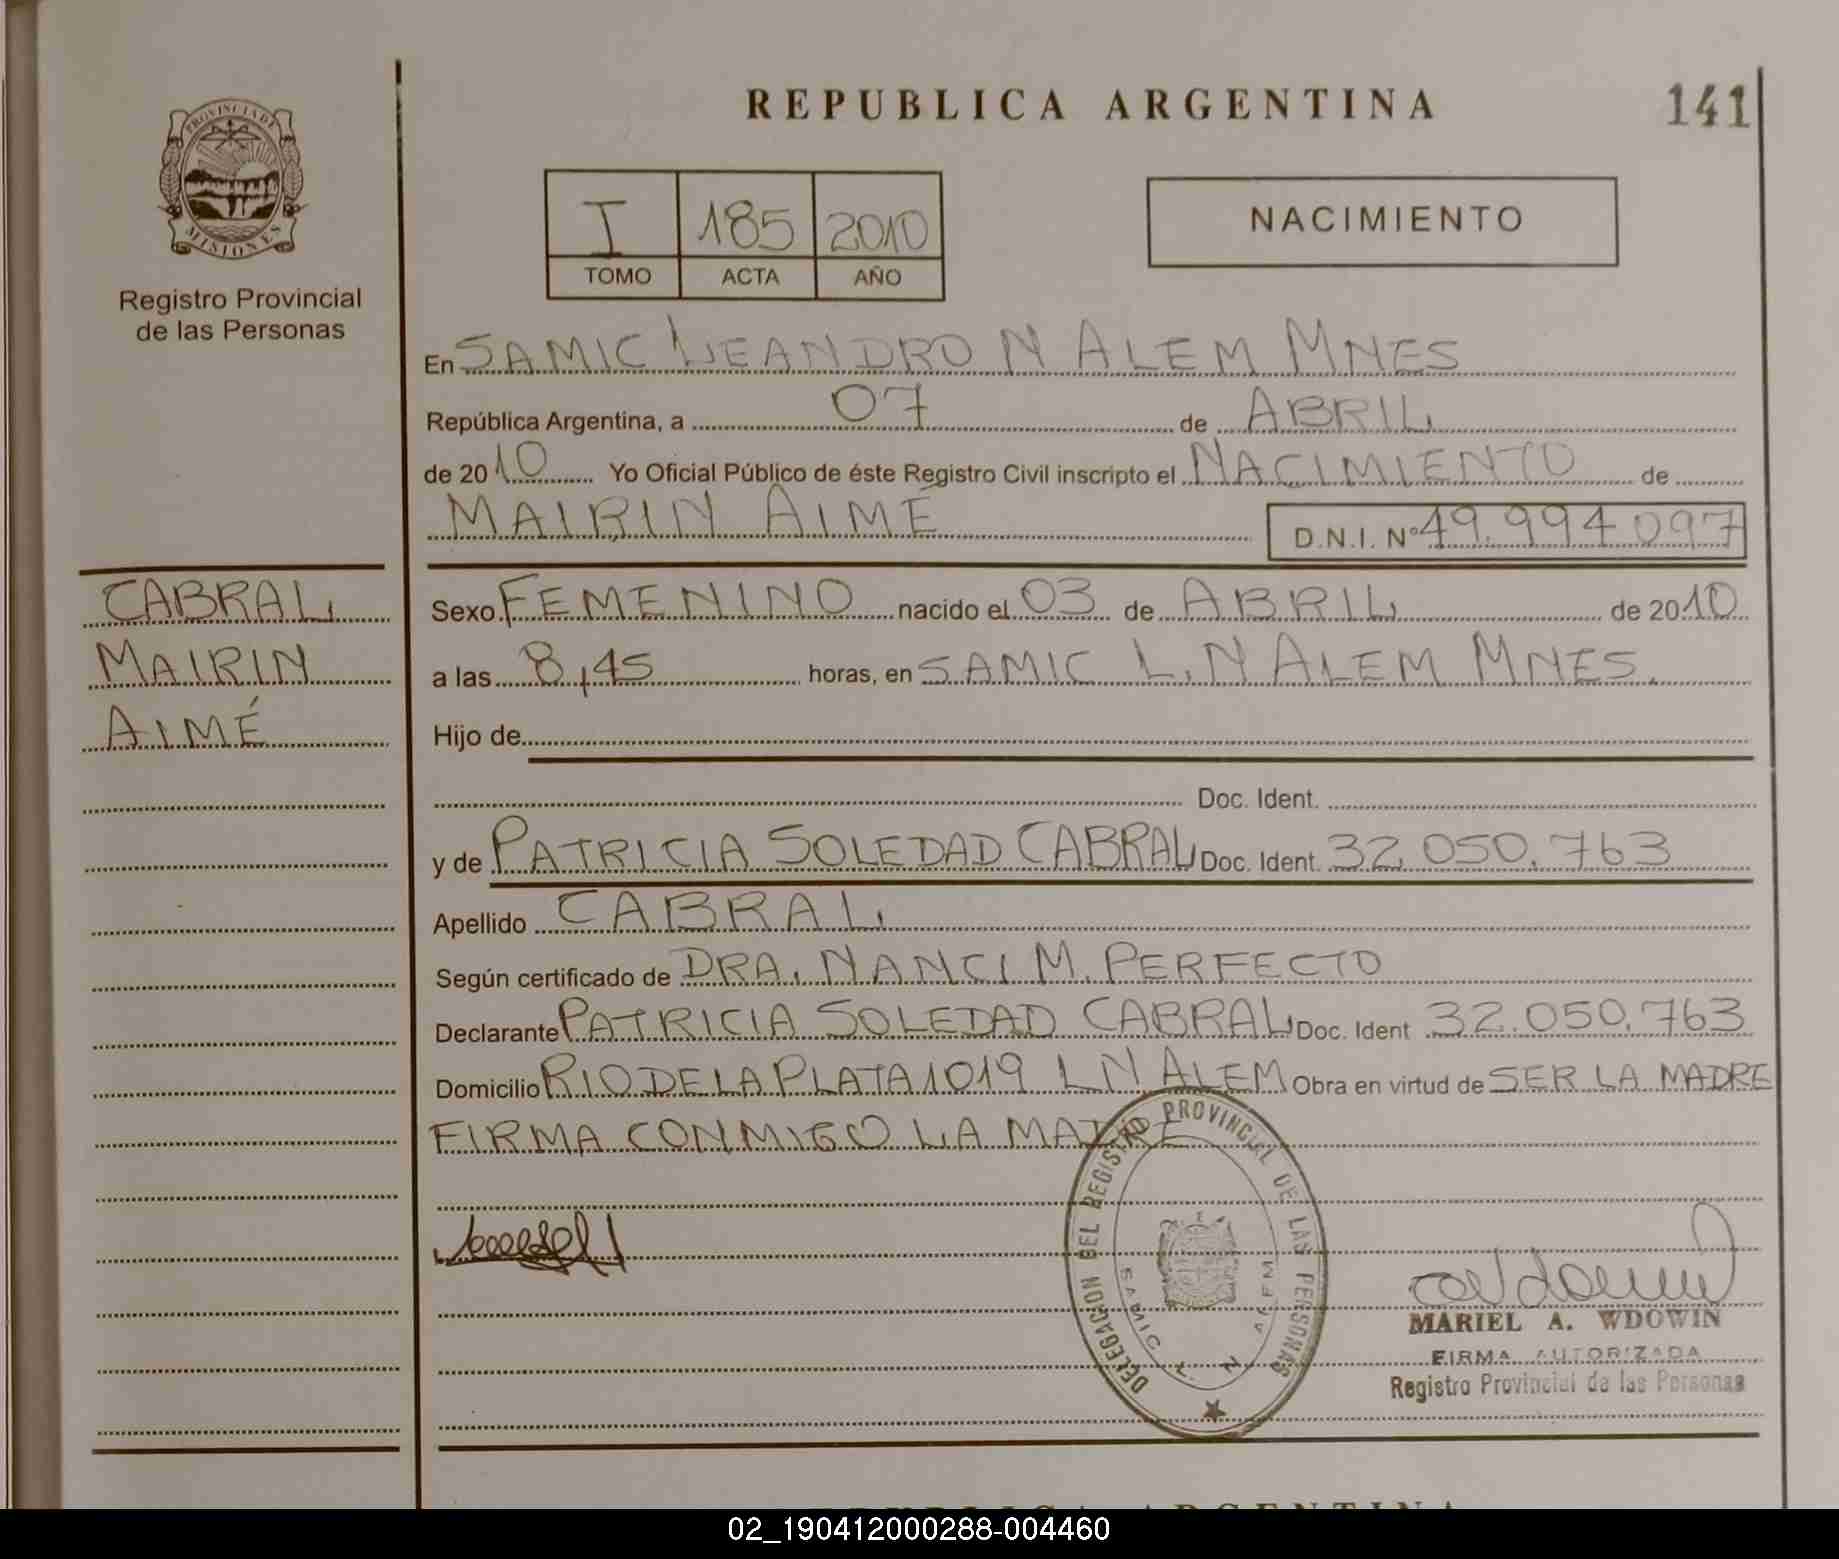 REPUBLICA ARGENTINA
141
PROVINCIA DE
MISIONES
Registro Provincial
de las Personas
I 185 2010
TOMO ACTA AÑO
NACIMIENTO
En SAMIC LEANDRO N ALEM MNES
República Argentina, a 07 de ABRIL
de 2010 Yo Oficial Público de éste Registro Civil inscripto el NACIMIENTO de
MAIRIN AIMÉ D.N.I. Nº 49.994 097
CABRAL
MAIRIN
AIMÉ
Sexo FEMENINO nacido el 03 de ABRIL de 2010
a las 8,45 horas, en SAMIC L.N ALEM MNES.
Hijo de
Doc. Ident.
y de PATRICIA SOLEDAD CABRAL Doc. Ident. 32.050.763
Apellido CABRAL
Según certificado de DRA. NANCI M. PERFECTO
Declarante PATRICIA SOLEDAD CABRAL Doc. Ident 32.050.763
Domicilio RIO DE LA PLATA 1019 L N ALEM Obra en virtud de SER LA MADRE
FIRMA CONMIGO LA MADRE
DELEGACION DEL REGISTRO PROVINCIAL DE LAS PERSONAS
SAMIC L. N ALEM
MARIEL A. WDOWIN
FIRMA AUTORIZADA
Registro Provincial de las Personas
REPUBLICA ARGENTINA
02_190412000288-004460